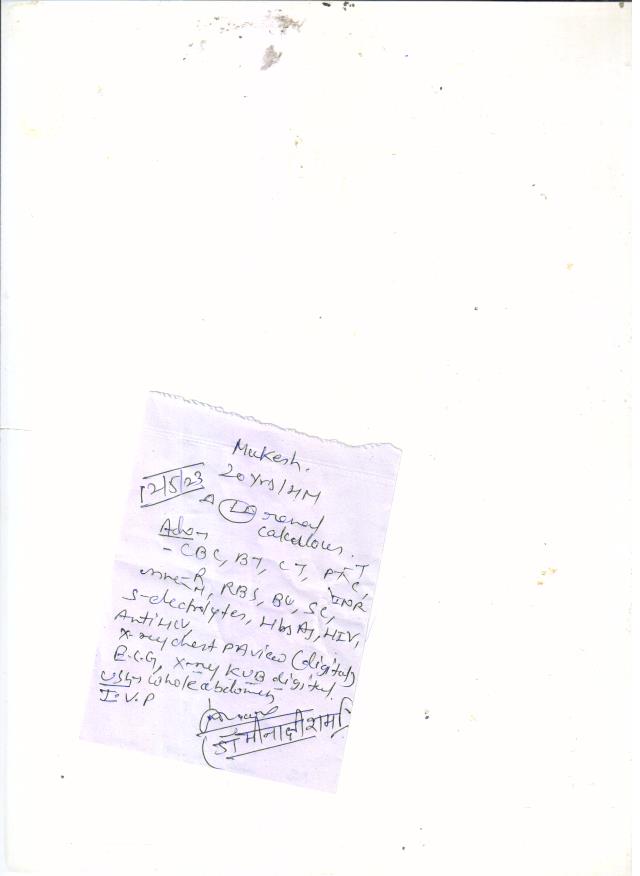 Mukesh.
20 yrs/HM
12/5/23
Δ Lt renal
calculous.
Adv-
- CBC, BT, CT, PTT
urine-R, INR
M, RBS, BU, SC,
S-electrolytes, HbsAg, HIV,
Anti HCV
X-ray chest PA view (digital)
E.C.G, X-ray KUB digital.
USG - whole abdomen
I.V.P
डॉ मीनाक्षी शर्मा